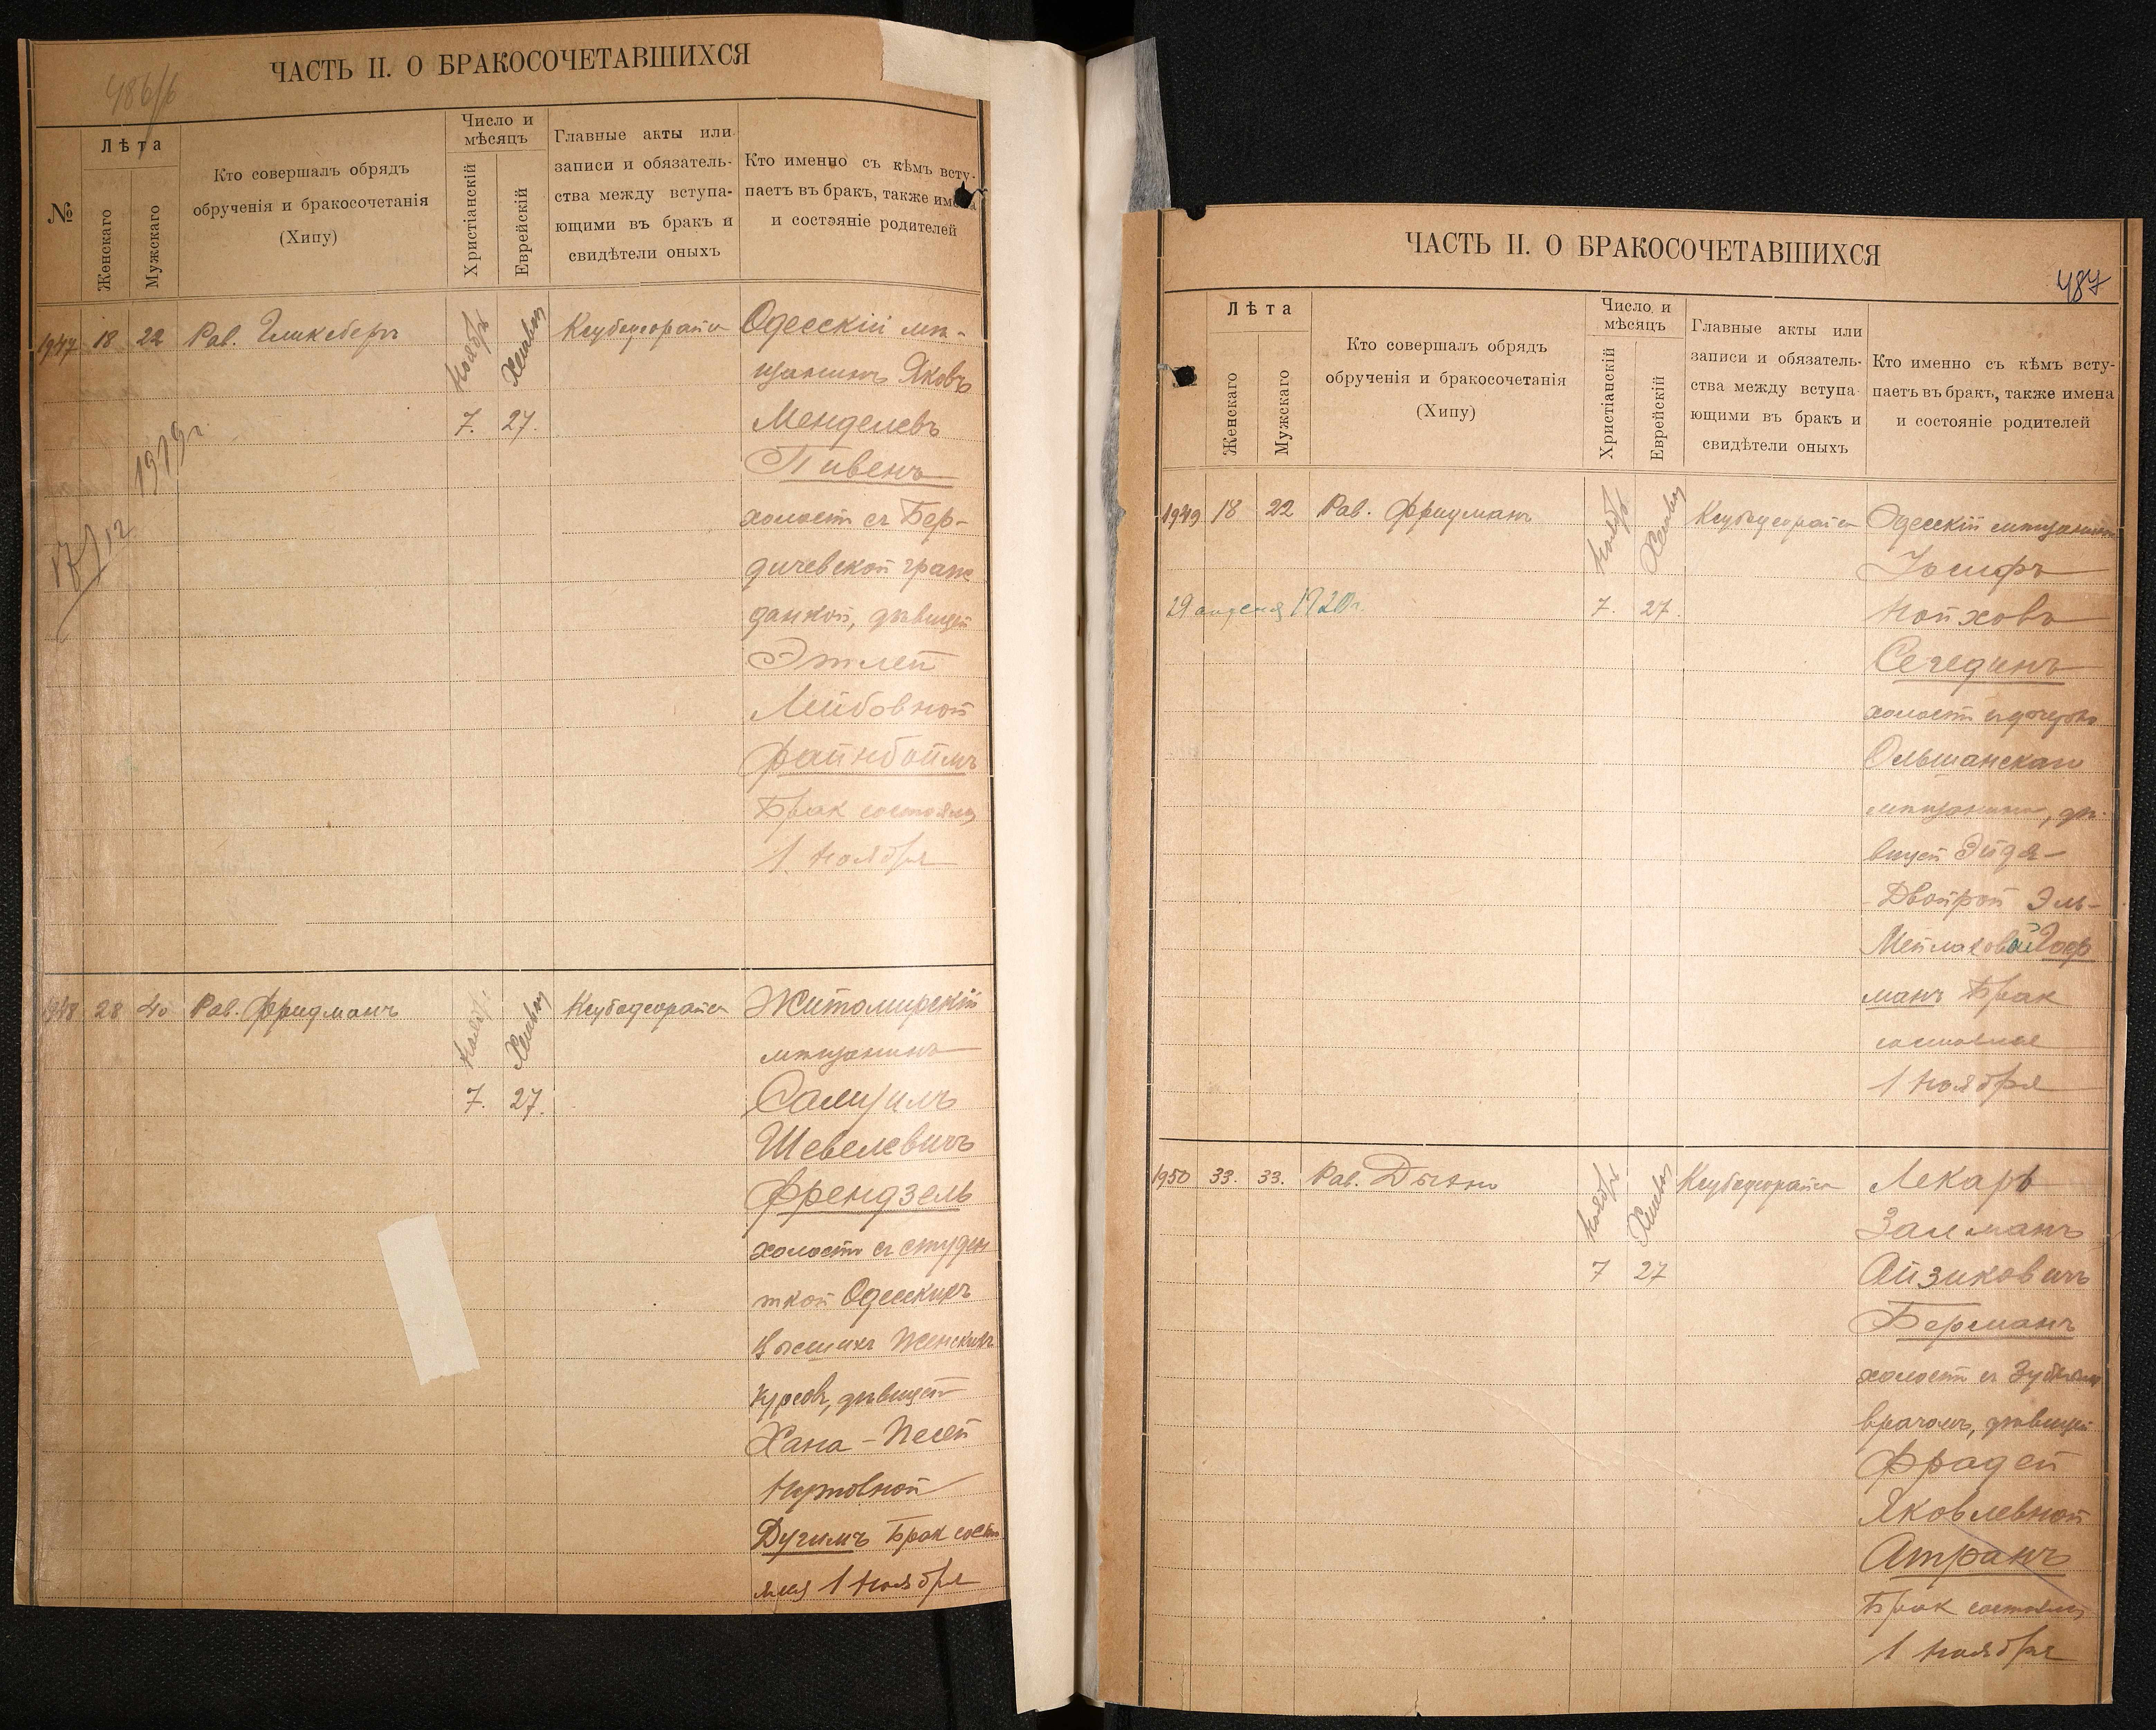 ЧАСТЬ II. О БРАКОСОЧЕТАВШИХСЯ
486/б
№
Лѣта
Женскаго
Мужскаго
Кто совершалъ обрядъ
обрученія и бракосочетанія
(Хипу)
Число и
мѣсяцъ
Христіанскій
Еврейскій
Главные акты или
записи и обязатель-
ства между вступа-
ющими въ бракъ и
свидѣтели оныхъ
Кто именно съ кѣмъ всту-
паетъ въ бракъ, также имена
и состэяніе родителей
1947 18 22 Рав. Гликсберъ Ноябрь Хешвон Ксубедеорайса Одесскій мѣ-
щанинъ Яковъ
7. 27. Менделевъ
Пивенъ
1919 г.
холост съ Бер-
17/12
дичевской граж
данкой, дѣвицей
Этлей
Лейбовной
Файнбоймъ
Брак состоялся
1 Ноября
1948 28 40 Рав. Фридманъ Ноябрь Хешвон Ксубедеорайса Житомирскій
мѣщанинъ
7. 27. Самуилъ
Шевелевичъ
Френдзель
холостъ съ студен
ткой Одесскихъ
Высшихъ Женскихъ
Курсовъ, дѣвицей
Хана-Песей
Нутовной
Дугимъ Брак состо
ялся 1 Ноября
ЧАСТЬ II. О БРАКОСОЧЕТАВШИХСЯ
487
Лѣта
Женскаго
Мужскаго
Кто совершалъ обрядъ
обрученія и бракосочетанія
(Хипу)
Число и
мѣсяцъ
Христіанскій
Еврейскій
Главные акты или
записи и обязатель-
ства между вступа-
ющими въ бракъ и
свидѣтели оныхъ
Кто именно съ кѣмъ всту-
паетъ въ бракъ, также имена
и состояніе родителей
1949 18 22 Рав. Фридманъ Ноябрь Хешвон Ксубедеорайса Одесскій мѣщанинъ
Іосифъ
29 апреля 1920 г. 7. 27. Нойховъ
Сегединъ
холостъ съ дочерью
Ольшанскаго
мѣщанина, дѣ-
вицей Эйдя-
Двойрой Эль-
Мейлаховой Гоф
манъ Брак
состоялся
1 Ноября
1950 33. 33. Рав. Ноябрь Хешвон Ксубедеорайса Лекарь
Залманъ
7 27 Айзиковичъ
Берманъ
холостъ съ Зубнымъ
врачомъ, дѣвицей
Фрадей
Яковлевной
Атранъ
Брак состоялся
1 Ноября